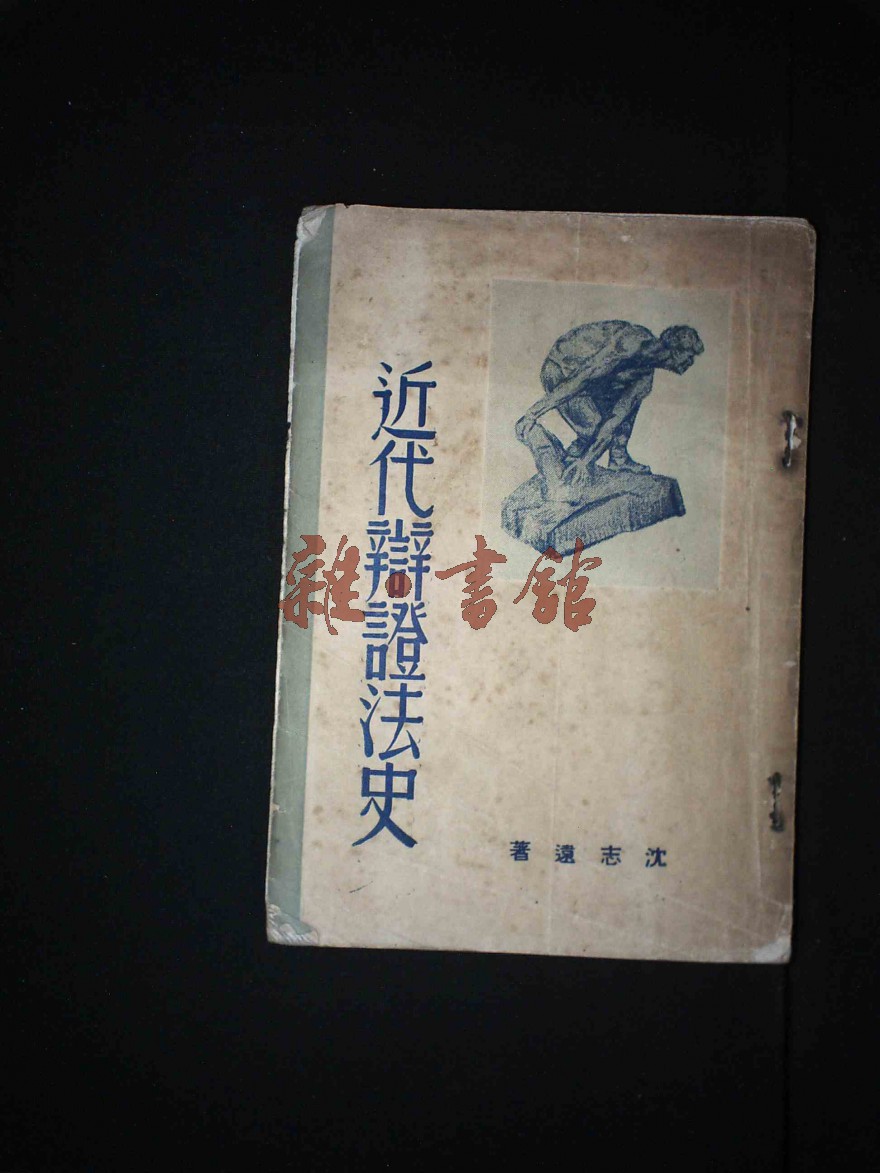 近代辯證法史
沈志遠著
雜書館